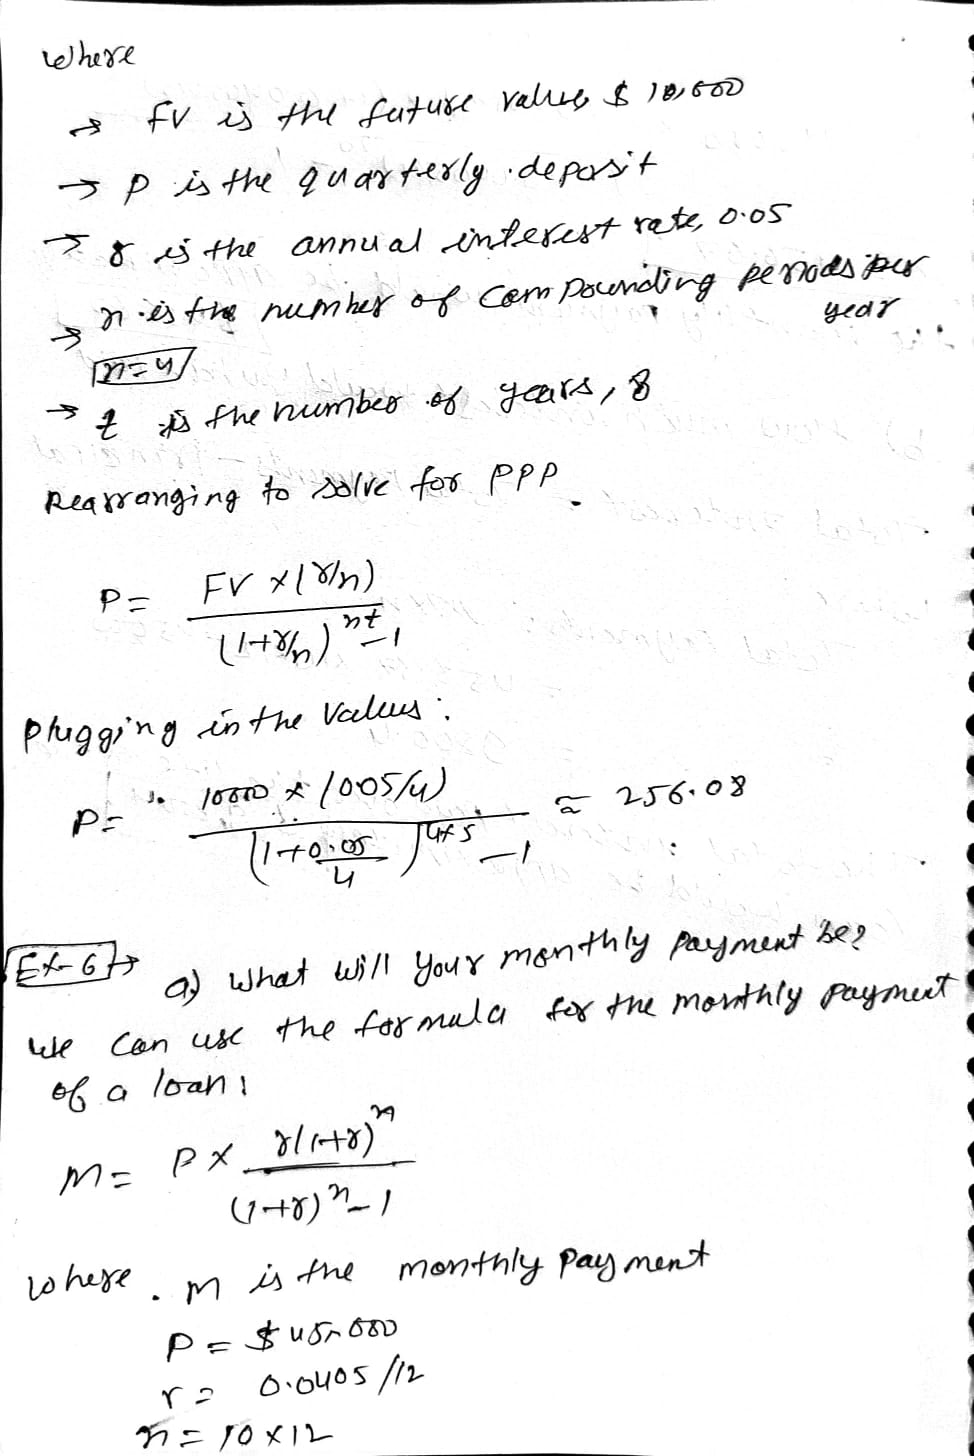 where
→ FV is the future value, $ 10,000
→ P is the quarterly deposit
→ r is the annual interest rate, 0.05
→ n is the number of compounding periods per
year
n=4
→ t is the number of years, 8
Rearranging to solve for PPP.
P = FV x (r/n)
(1+r/n)^nt - 1
plugging in the values:
P = 10000 x (0.05/4) ≈ 256.08
(1+0.05/4)^4x5 - 1
Ex-6→ a) What will your monthly payment be?
we can use the formula for the monthly payment
of a loan:
M = P x r(1+r)^n
(1+r)^n - 1
where . M is the monthly payment
P = $45,000
r = 0.0405/12
n = 10x12